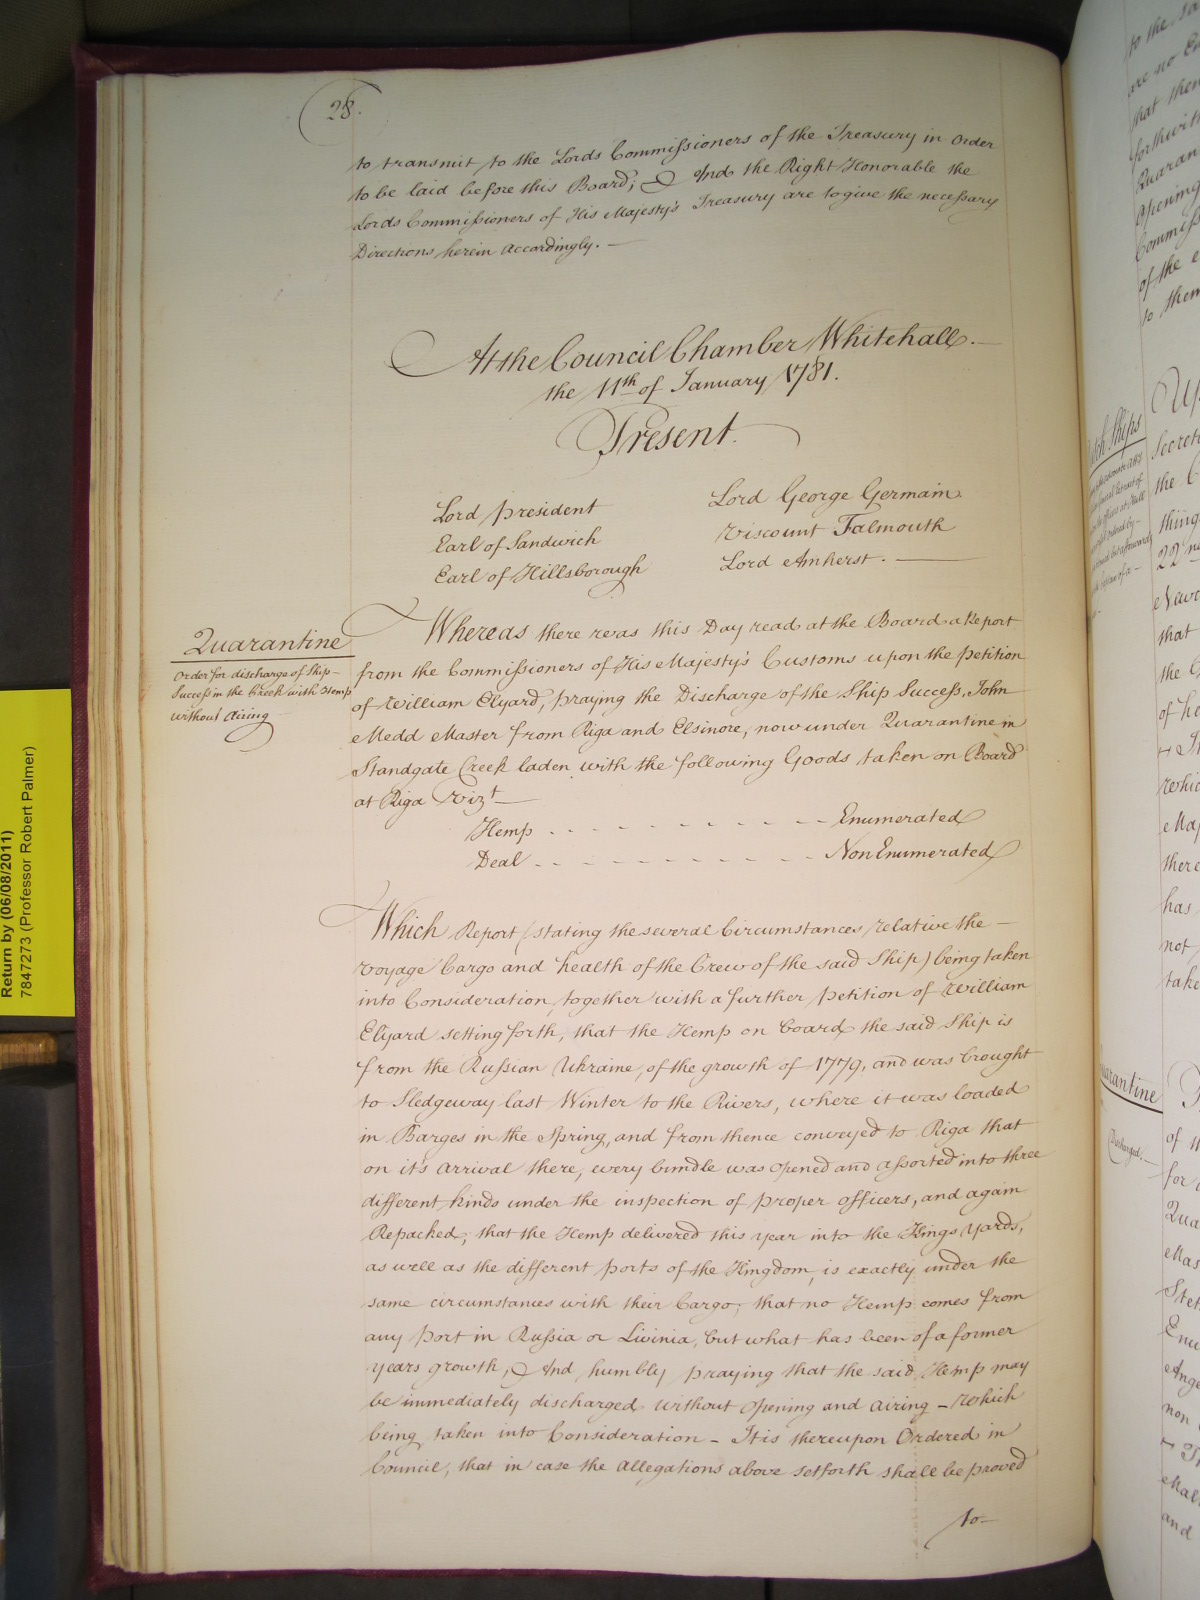 28.
to transmit to the Lords Commissioners of the Treasury in Order
to be laid before this Board; And the Right Honorable the
Lords Commissioners of His Majesty's Treasury are to give the necessary
Directions herein Accordingly. —
At the Council Chamber Whitehall. —
the 11th of January 1781.
Present.
Lord President
Earl of Sandwich
Earl of Hillsborough
Lord George Germain
Viscount Falmouth
Lord Amherst. —
Quarantine
Order for discharge of Ship
Success in the Creek with Hemp
without Airing
Whereas there was this Day read at the Board a Report
from the Commissioners of His Majesty's Customs upon the Petition
of William Elyard, praying the Discharge of the Ship Success, John
Medd Master from Riga and Elsinore, now under Quarantine in
Standgate Creek laden with the following Goods taken on Board
at Riga Vizt —
Hemp - - - - - - - - - Enumerated
Deal - - - - - - - - - Non Enumerated
Which Report (stating the several Circumstances relative the —
Voyage Cargo and health of the Crew of the said Ship) being taken
into Consideration, together with a further Petition of William
Elyard setting forth, that the Hemp on board the said Ship is
from the Russian Ukraine, of the growth of 1779, and was brought
to Sledgeway last Winter to the Rivers, where it was loaded
in Barges in the Spring, and from thence conveyed to Riga that
on it's arrival there, every bundle was opened and assorted into three
different kinds under the inspection of proper officers, and again
Repacked; that the Hemp delivered this year into the Kings Yards,
as well as the different ports of the Kingdom, is exactly under the
same circumstances with their Cargo; that no Hemp comes from
any Port in Russia or Livinia, but what has been of a former
years growth, And humbly praying that the said Hemp may
be immediately discharged without opening and airing – Which
being taken into Consideration – It is thereupon Ordered in
Council, that in case the Allegations above setforth shall be proved
to —
Return by (06/08/2011)
7847273 (Professor Robert Palmer)
to the
are no
that them
forthwith
Quaran
Opening
Commiss
of the
to them
Ships
Secret
the
thing
22
that
the
of
which
there
has
not
take
Quarantine
Discharged.
of
for
Qua
Mas
non
and